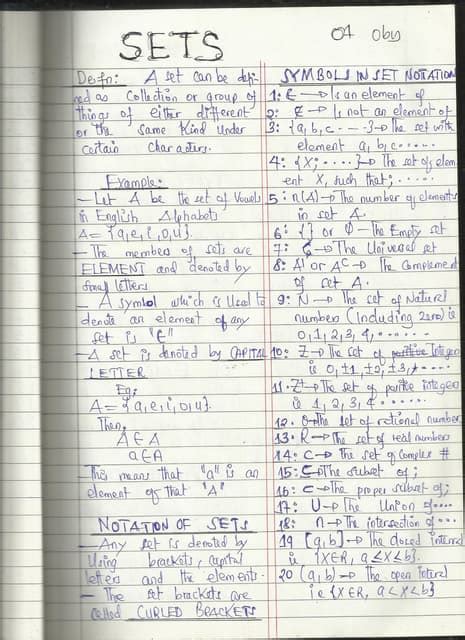 SETS
04 oby
Defn: A set can be defi-
ned as Collection or group of
things of either different
or the same Kind under
certain characters.
Example:
- Let A be the set of Vowels
in English Alphabets
A = {a,e,i,o,u}
- The members of sets are
ELEMENT and denoted by
small letters
- A symbol which is used to
denote an element of any
set is "∈"
- A set is denoted by CAPITAL
LETTER
Eg;
A = {a,e,i,o,u}.
Then,
A ∈ A
a ∈ A
- This means that "a" is an
element of that "A"
NOTATION OF SETS
- Any set is denoted by
Using brackets, capital
letters and the elements.
- The set brackets are
called CURLED BRACKETS
SYMBOLS IN SET NOTATION
1: ∈ → Is an element of
2: ∉ → Is not an element of
3: {a,b,c....} → The set with
element a, b, c.....
4: {x;.....} → The set of elem
ent X, such that;.....
5: n(A) → The number of elements
in set A.
6: {} or Ø → The Empty set
7: → The Universal set
8: A' or Aᶜ → The Complement
of set A.
9: N → The set of Natural
numbers (Including zero) ie
0, 1, 2, 3, 4, ......
10: Z → The set of positive Integer
is 0, ±1, ±2, ±3, ....
11: Z⁺ → The set of positive integer
is 1, 2, 3, 4 ......
12. Q → The set of rational number
13: R → The set of real numbers
14: C → The set of Complex #
15: ⊆ → The subset of;
16: ⊂ → The proper subset of;
17: U → The Union of....
18: ∩ → The intersection of ...
19 [a,b] → The closed interval
ie {X∈R, a≤X≤b}.
20 (a,b) → The open interal
ie {X∈R, a<X<b}